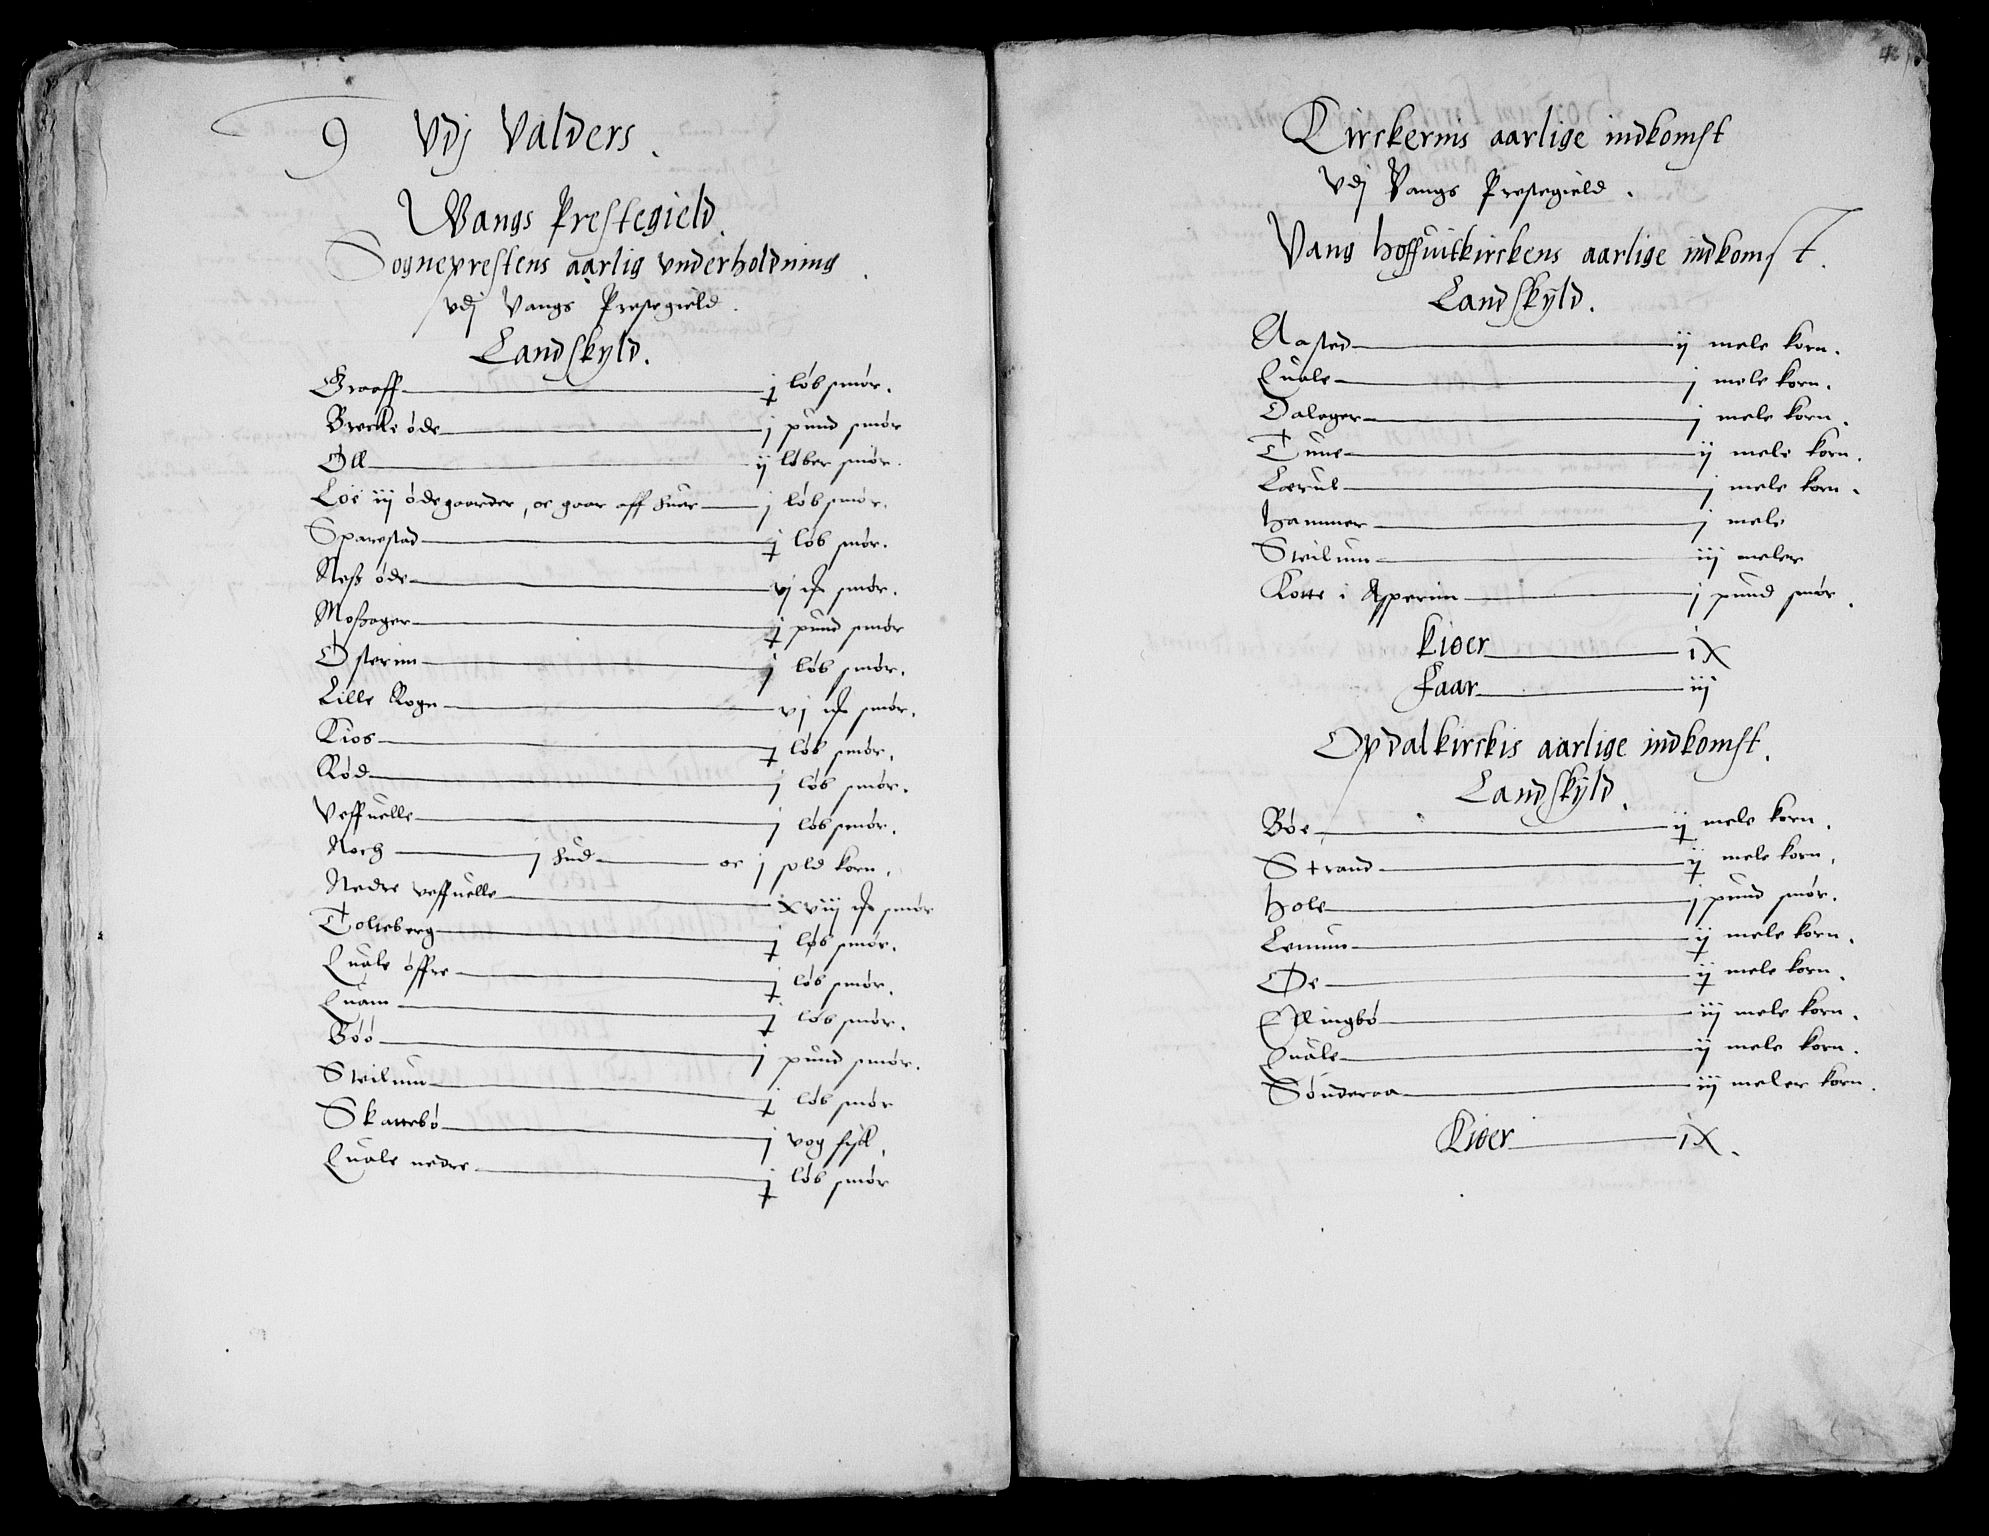 9 Vdj Valders.
Wangs Prestegield.
Sogneprestens aarlig vnderholdning.
vdj Vangs Prestegield.
Landskyld.
Graaff j løb smør.
Brecke øde j pund smør
Oll ij løber smør.
Løe iij ødegaarder, oc gaar aff huer j løb smør.
Sparestad j løb smør.
Neß øde vj smør.
Moßager j pund smør
Østerim j løb smør.
Lille Rogn vj smør.
Kios j løb smør.
Rød j løb smør.
Veffuelle j løb smør.
Noch j hud oc j sold korn.
Nedre veffuelle xviij smør
Tolleberg j løb smør.
Quale øffre j løb smør.
Quam j løb smør.
Böö j pund smør.
Steilum j løb smør
Skattebø j vog fisk.
Quale nedre j løb smør
Kirckerns aarlige indkomst
vdj Vangs Prestegield.
Vang hoffuitkirckens aarlige indkomst.
Landskyld.
Aasted ij mele korn.
Quale j mele korn.
Dalager j mele korn.
Tune ij mele korn.
Lærul j mele korn.
Hammer j mele
Steilum iij meler
Kotte i Asperim j pund smør.
Kiøer ix
Faar iij
Opdalkirckis aarlige indkomst.
Landskyld.
Bøe ij mele korn.
Strand ij mele korn.
Hole j pund smør.
Lemum ij mele korn.
Øe ij mele korn.
Ellingbø iij mele korn.
Quale ij mele korn.
Sønderaa iij meler korn.
Kiøer ix.